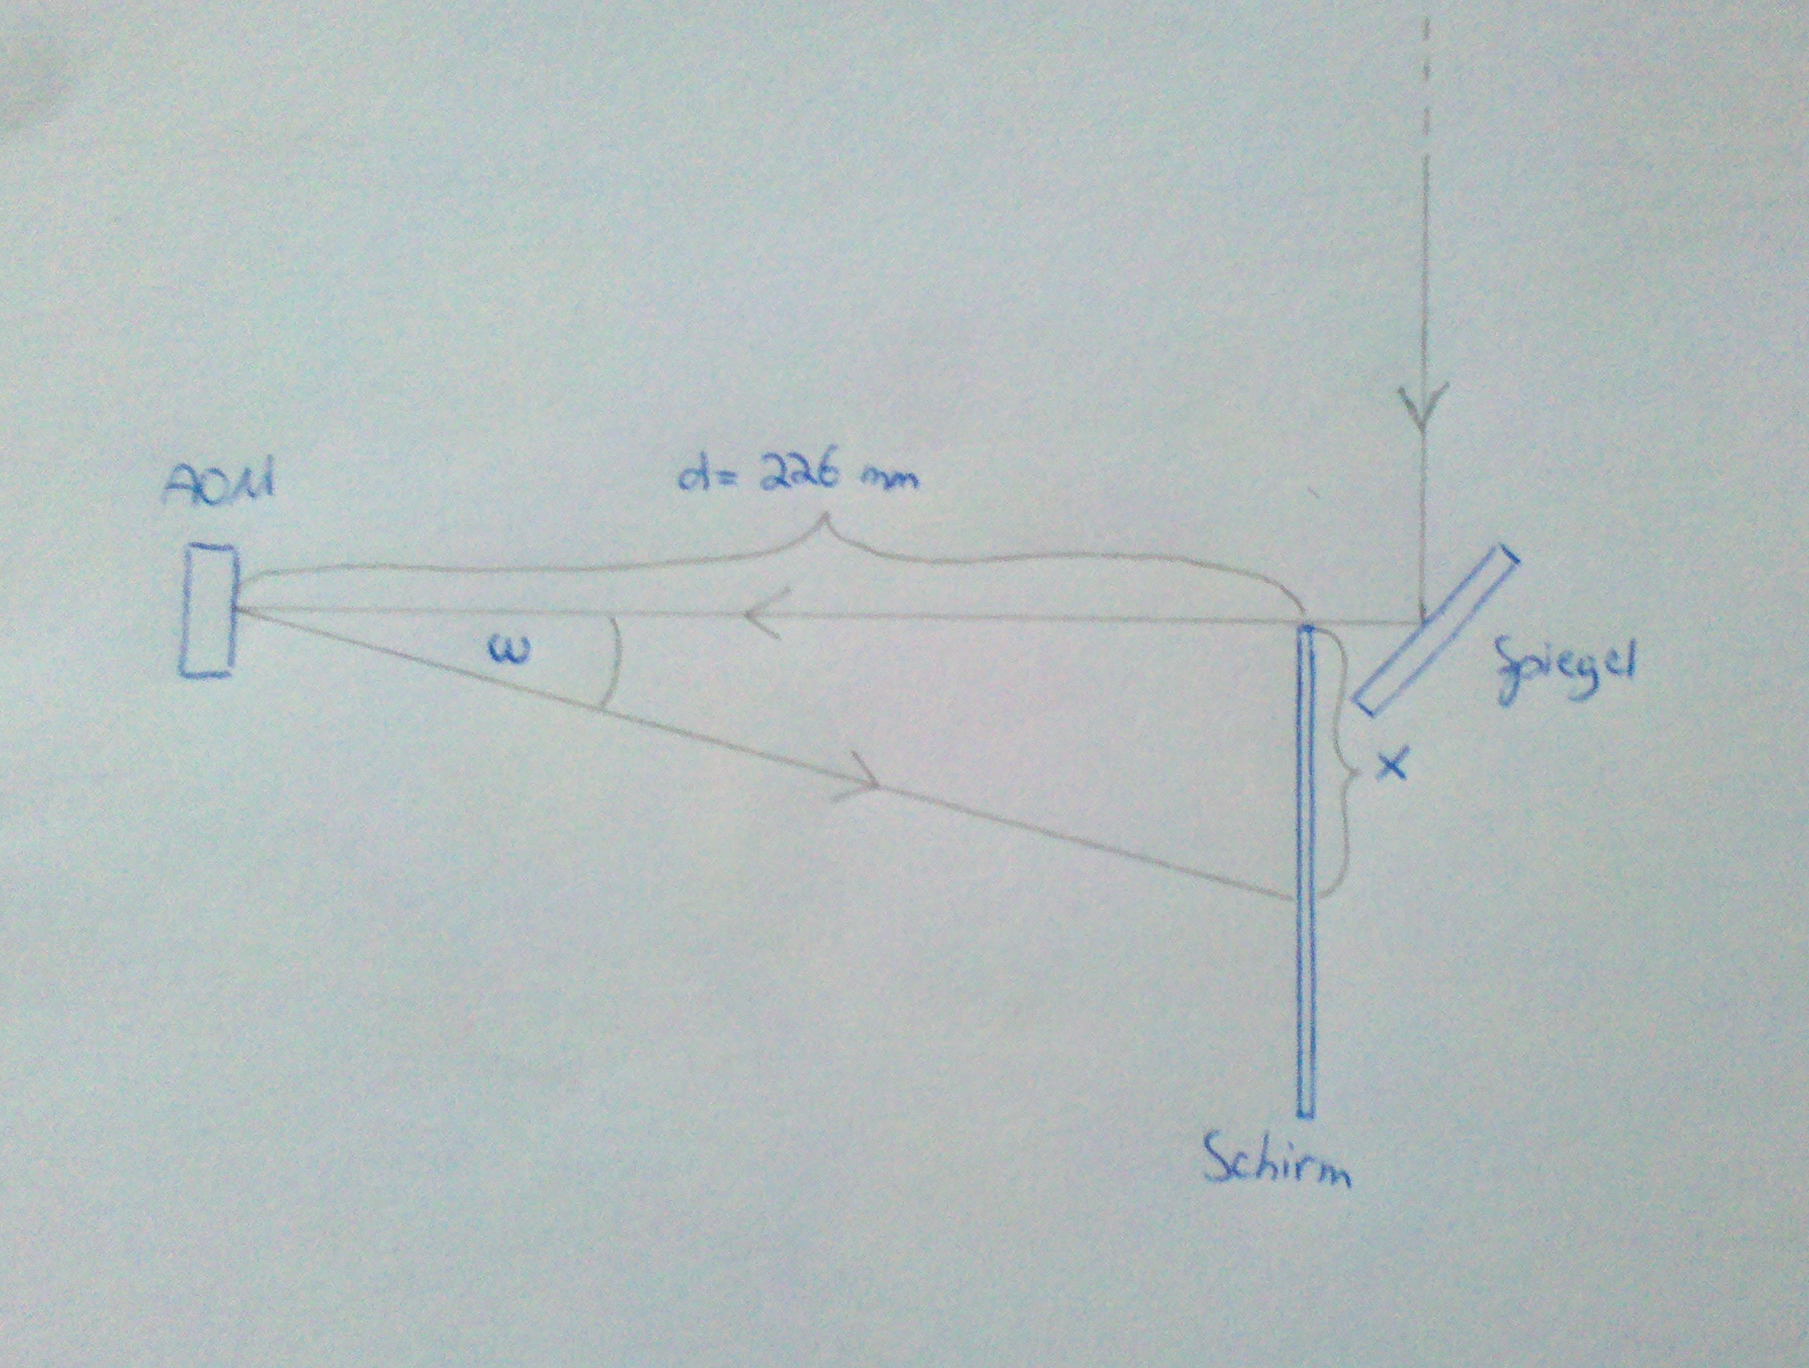 AOM
d= 226 mm
ω
Spiegel
x
Schirm